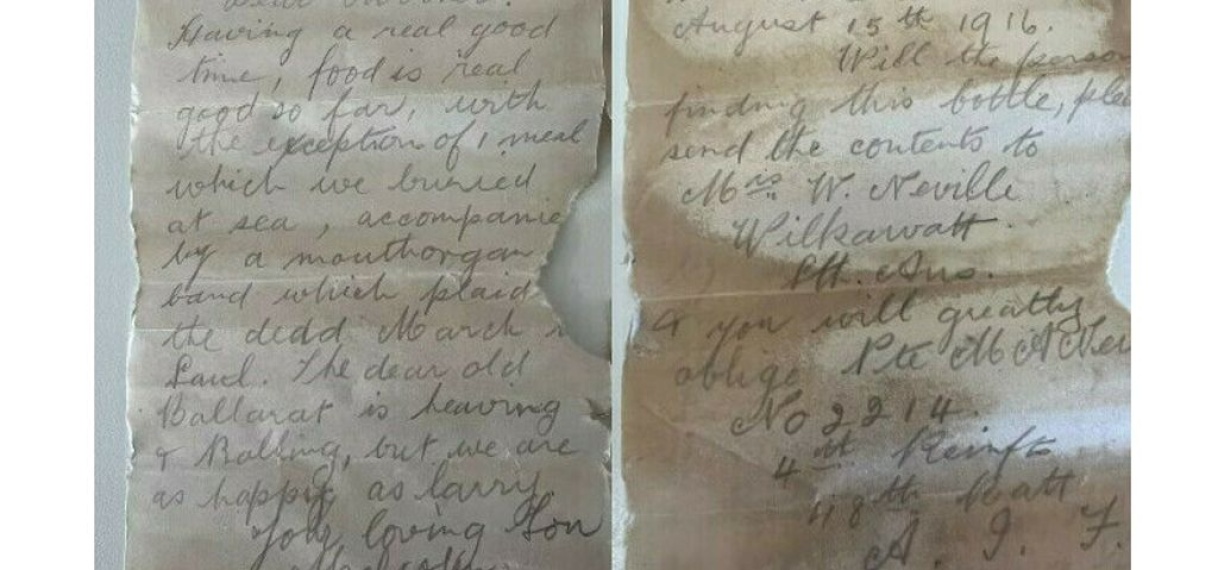 Having a real good
time, food is real
good so far, with
the exception of 1 meal
which we buried
at sea, accompanie
by a mouthorgan
band which plaid
the dedd March
Saul. The dear old
Ballarat is heaving
& Rolling, but we are
as happy as larry
Your loving Son
August 15th 1916.
Will the person
finding this bottle, plea
send the contents to
Mrs W. Neville
Wilkawatt
Sth. Aus.
& you will greatly
oblige Pte M A Nev
No 2214.
4th Reinfts
48th Batt
A. I. F.